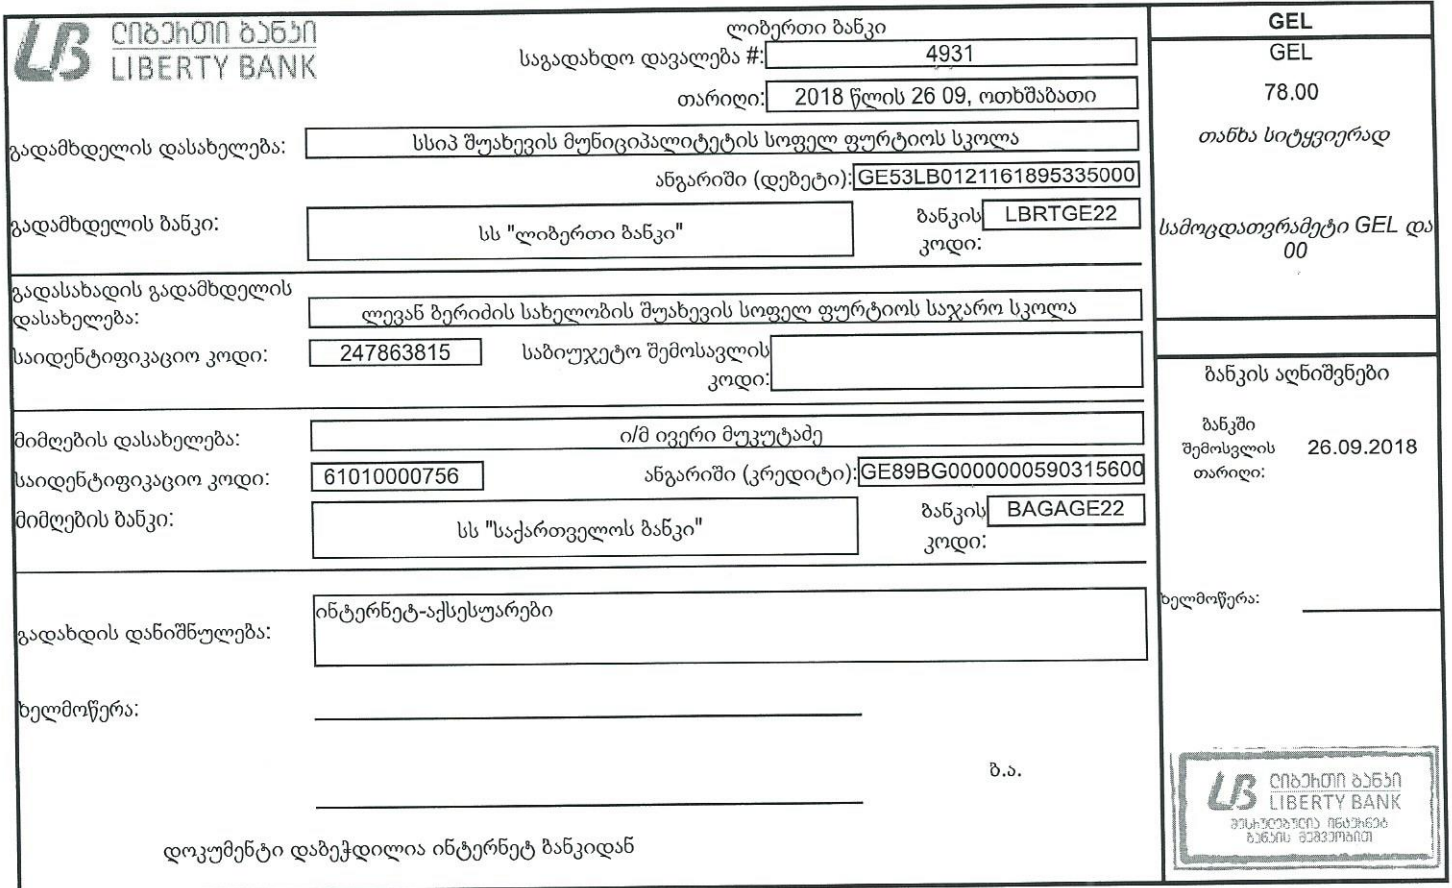 ლიბერთი ბანკი
LIBERTY BANK
ლიბერთი ბანკი
საგადახდო დავალება #: 4931
თარიღი: 2018 წლის 26 09, ოთხშაბათი
გადამხდელის დასახელება: სსიპ შუახევის მუნიციპალიტეტის სოფელ ფურტიოს სკოლა
ანგარიში (დებეტი): GE53LB0121161895335000
გადამხდელის ბანკი: სს "ლიბერთი ბანკი" ბანკის LBRTGE22
კოდი:
გადასახადის გადამხდელის
დასახელება: ლევან ბერიძის სახელობის შუახევის სოფელ ფურტიოს საჯარო სკოლა
საიდენტიფიკაციო კოდი: 247863815 საბიუჯეტო შემოსავლის
კოდი:
მიმღების დასახელება: ი/მ ივერი მუკუტაძე
საიდენტიფიკაციო კოდი: 61010000756 ანგარიში (კრედიტი): GE89BG0000000590315600
მიმღების ბანკი: სს "საქართველოს ბანკი" ბანკის BAGAGE22
კოდი:
გადახდის დანიშნულება: ინტერნეტ-აქსესუარები
ხელმოწერა:
ბ.ა.
დოკუმენტი დაბეჭდილია ინტერნეტ ბანკიდან
GEL
GEL
78.00
თანხა სიტყვიერად
სამოცდათვრამეტი GEL და
00
ბანკის აღნიშვნები
ბანკში
შემოსვლის 26.09.2018
თარიღი:
ხელმოწერა:
ლიბერთი ბანკი
LIBERTY BANK
შესრულებულია ინტერნეტ
ბანკის მეშვეობით